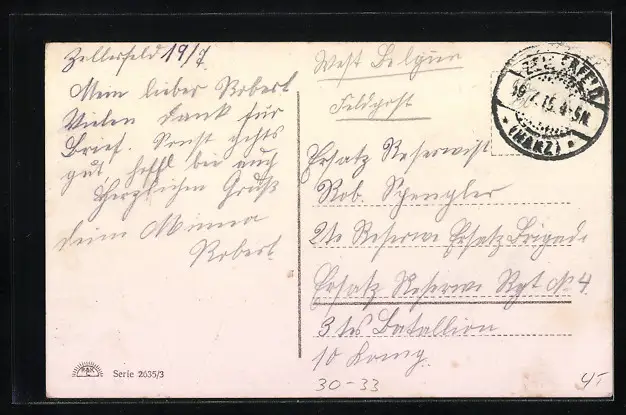 Zellerfeld 19/7.
Mein lieber Robert
Vielen Dank für
Brief. Sonst gehts
gut hoffl bei euch
Herzlichen Gruß
deine Minna
Robert.
West Belgien
Feldpost
ZELLERFELD
19.7.15.4-5N.
* (HARZ) *
Ersatz Reservist
Rob. Spengler
2te Reserve Ersatz Brigade
Ersatz Reserve Rgt No 4
3tes Batallion
10 Komp.
Serie 2635/3
30-33